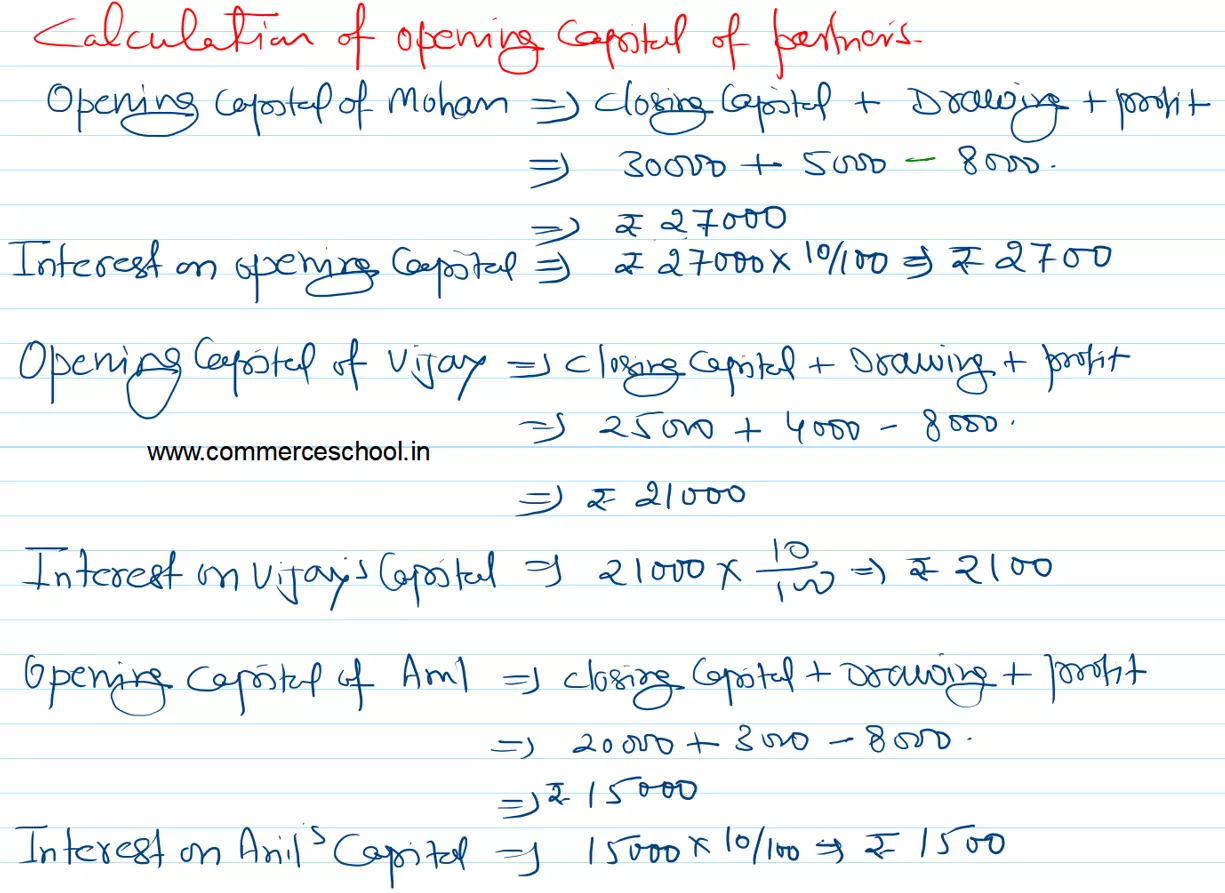 Calculation of opening Capital of partners.
Opening Capital of Mohan => Closing Capital + Drawing + profit
=> 30000 + 5000 - 8000.
=> ₹ 27000
Interest on opening Capital => ₹ 27000 x 10/100 => ₹ 2700
Opening Capital of Vijay => Closing Capital + Drawing + profit
=> 25000 + 4000 - 8000.
www.commerceschool.in
=> ₹ 21000
Interest on Vijay's Capital => 21000 x 10/100 => ₹ 2100
Opening Capital of Anil => Closing Capital + Drawing + profit
=> 20000 + 3000 - 8000.
=> ₹ 15000
Interest on Anil's Capital => 15000 x 10/100 => ₹ 1500